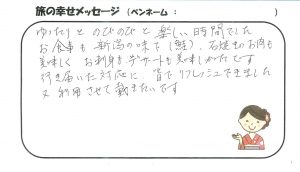 旅の幸せメッセージ （ペンネーム：　　　　　　）
ゆったりとのびのびと楽しい時間でした
お食事も新潟の味で（鮭）、石焼きのお肉も
美味しく お刺身もデザートも美味しかったです
行き届いた対応に 皆でリフレッシュできました
又利用させて戴きたいです